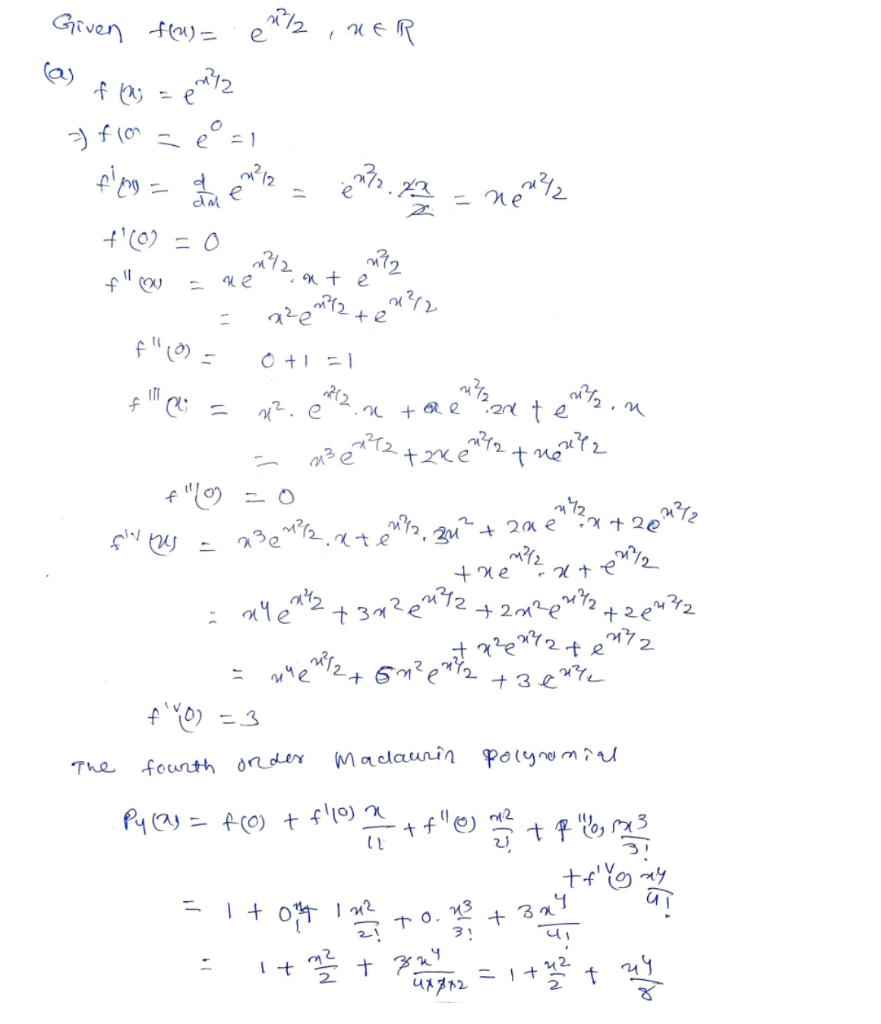 Given f(x) = e^{x²/2} , x ∈ ℝ
(a) f(x) = e^{x²/2}
⇒ f(0) = e⁰ = 1
f'(x) = d/dx e^{x²/2} = e^{x²/2} . 2x/2 = xe^{x²/2}
f'(0) = 0
f''(x) = xe^{x²/2} . x + e^{x²/2}
= x²e^{x²/2} + e^{x²/2}
f''(0) = 0 + 1 = 1
f'''(x) = x² . e^{x²/2} . x + e^{x²/2} . 2x + e^{x²/2} . x
= x³e^{x²/2} + 2xe^{x²/2} + xe^{x²/2}
f'''(0) = 0
f^{iv}(x) = x³e^{x²/2} . x + e^{x²/2} . 3x² + 2xe^{x²/2} . x + 2e^{x²/2}
+ xe^{x²/2} . x + e^{x²/2}
= x⁴e^{x²/2} + 3x²e^{x²/2} + 2x²e^{x²/2} + 2e^{x²/2}
+ x²e^{x²/2} + e^{x²/2}
= x⁴e^{x²/2} + 6x²e^{x²/2} + 3e^{x²/2}
f^{iv}(0) = 3
The fourth order Maclaurin polynomial
P₄(x) = f(0) + f'(0) x/1! + f''(0) x²/2! + f'''(0) x³/3!
+ f^{iv}(0) x⁴/4!
= 1 + 0x/1! + 1 x²/2! + 0 . x³/3! + 3x⁴/4!
= 1 + x²/2 + 3x⁴/4×3×2 = 1 + x²/2 + x⁴/8